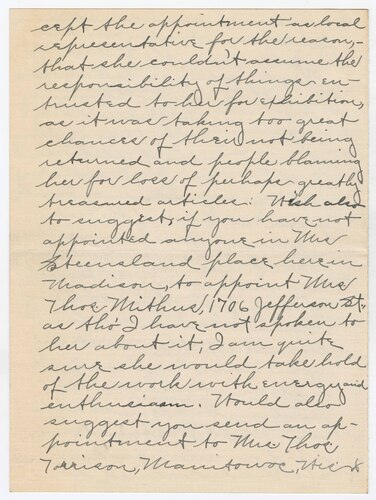 cept the appointment as local
representative for the reason,-
that she couldn't assume the
responsibility of things en-
trusted to her for exhibition,
as it was taking too great
chances of them not being
returned and people blaming
her for loss of perhaps greatly
treasured articles. Wish also
to suggest, if you have not
appointed anyone in Mrs
Steensland place here in
Madison, to appoint Mrs
Thos Mithus, 1706 Jefferson St.,
as tho' I have not spoken to
her about it, I am quite
sure she would take hold
of the work with energy and
enthusiasm. Would also
suggest you send an ap-
pointment to Mrs Thos
Torrison, Manitowoc, Wis &